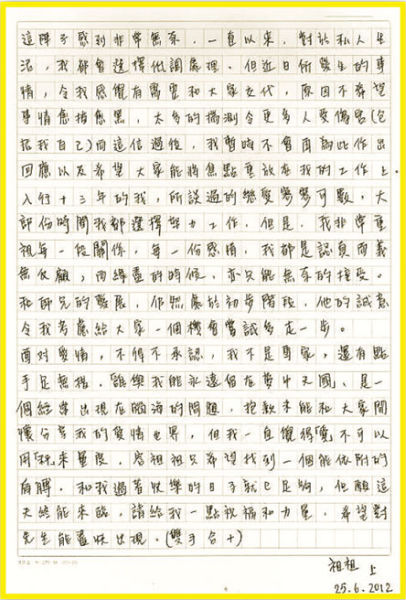 這陣子感到非常無奈.一直以來,對於私人生
活,我都會選擇低調處理.但近日所發生的事
情,令我感覺有需要和大家交代,原因不希望
事情愈描愈黑,太多的揣測令更多人受傷害(包
括我自己)而這信過後,我暫時不會再就此作出
回應以及希望大家能將焦點重放在我的工作上.
入行十三年的我,所談過的戀愛寥寥可數,大
部份時間我都選擇努力工作.但是,我非常重
視每一段關係,每一份感情,我都是認真而義
無反顧,而緣盡的時候,亦只能無奈的接受.
和師兄的發展,仍然處於初步階段,他的誠意
令我考慮給大家一個機會嘗試多走一步.
面對愛情,不得不承認,我不是專家,還有點
手足無措.誰樂我能永遠留在夢中天國,是一
個經常出現在腦海的問題,抱歉未能和大家開
懷分享我的愛情世界,但我一直覺得「愛」不可以
用「秤」來量度.容祖祖只希望找到一個能依附的
肩膊,和我過着快樂的日子就已足夠,但願這
天終能來臨,請給我一點祝福和力量,希望對
先生能盡快出現.(雙手合十)
祖祖 上
25.6.2012